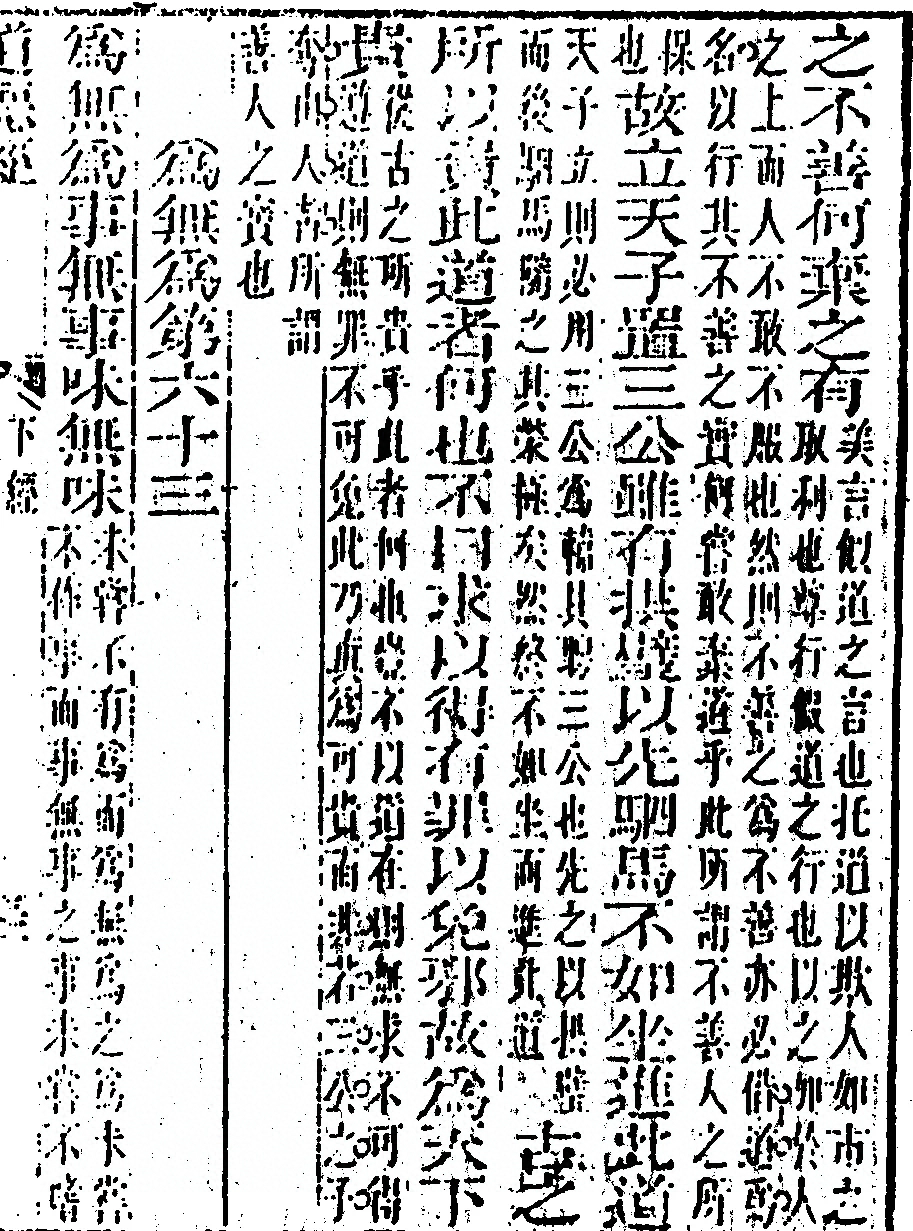 之不善何棄之有
美言似道之言也托道以欺人如市之
取利也尊行假道之行也以之加於人
之上而人不敢不服也然則不善之為不善亦必道
名以行其不善之實何嘗敢棄道乎此所謂不善人之所
保也
故立天子置三公雖有拱璧以先駟馬不如坐進此道
天子立則必用三公為輔其聘三公也先之以拱璧
而後駟馬隨之其榮極矣然終不如坐而進此道
古之
所以貴此道者何也不曰求以得有罪以免邪故為天下
貴
從古之所貴乎此者何也豈不以道在則無求不可得
道道則無罪不可免此乃真為可貴而非若三公之予
奪由人者所謂
善人之寶也
為無為第六十三
為無為事無事味無味
未嘗不有為而為無為之為未嘗
不作事而事無事之事未嘗不嗜
道德經
下經